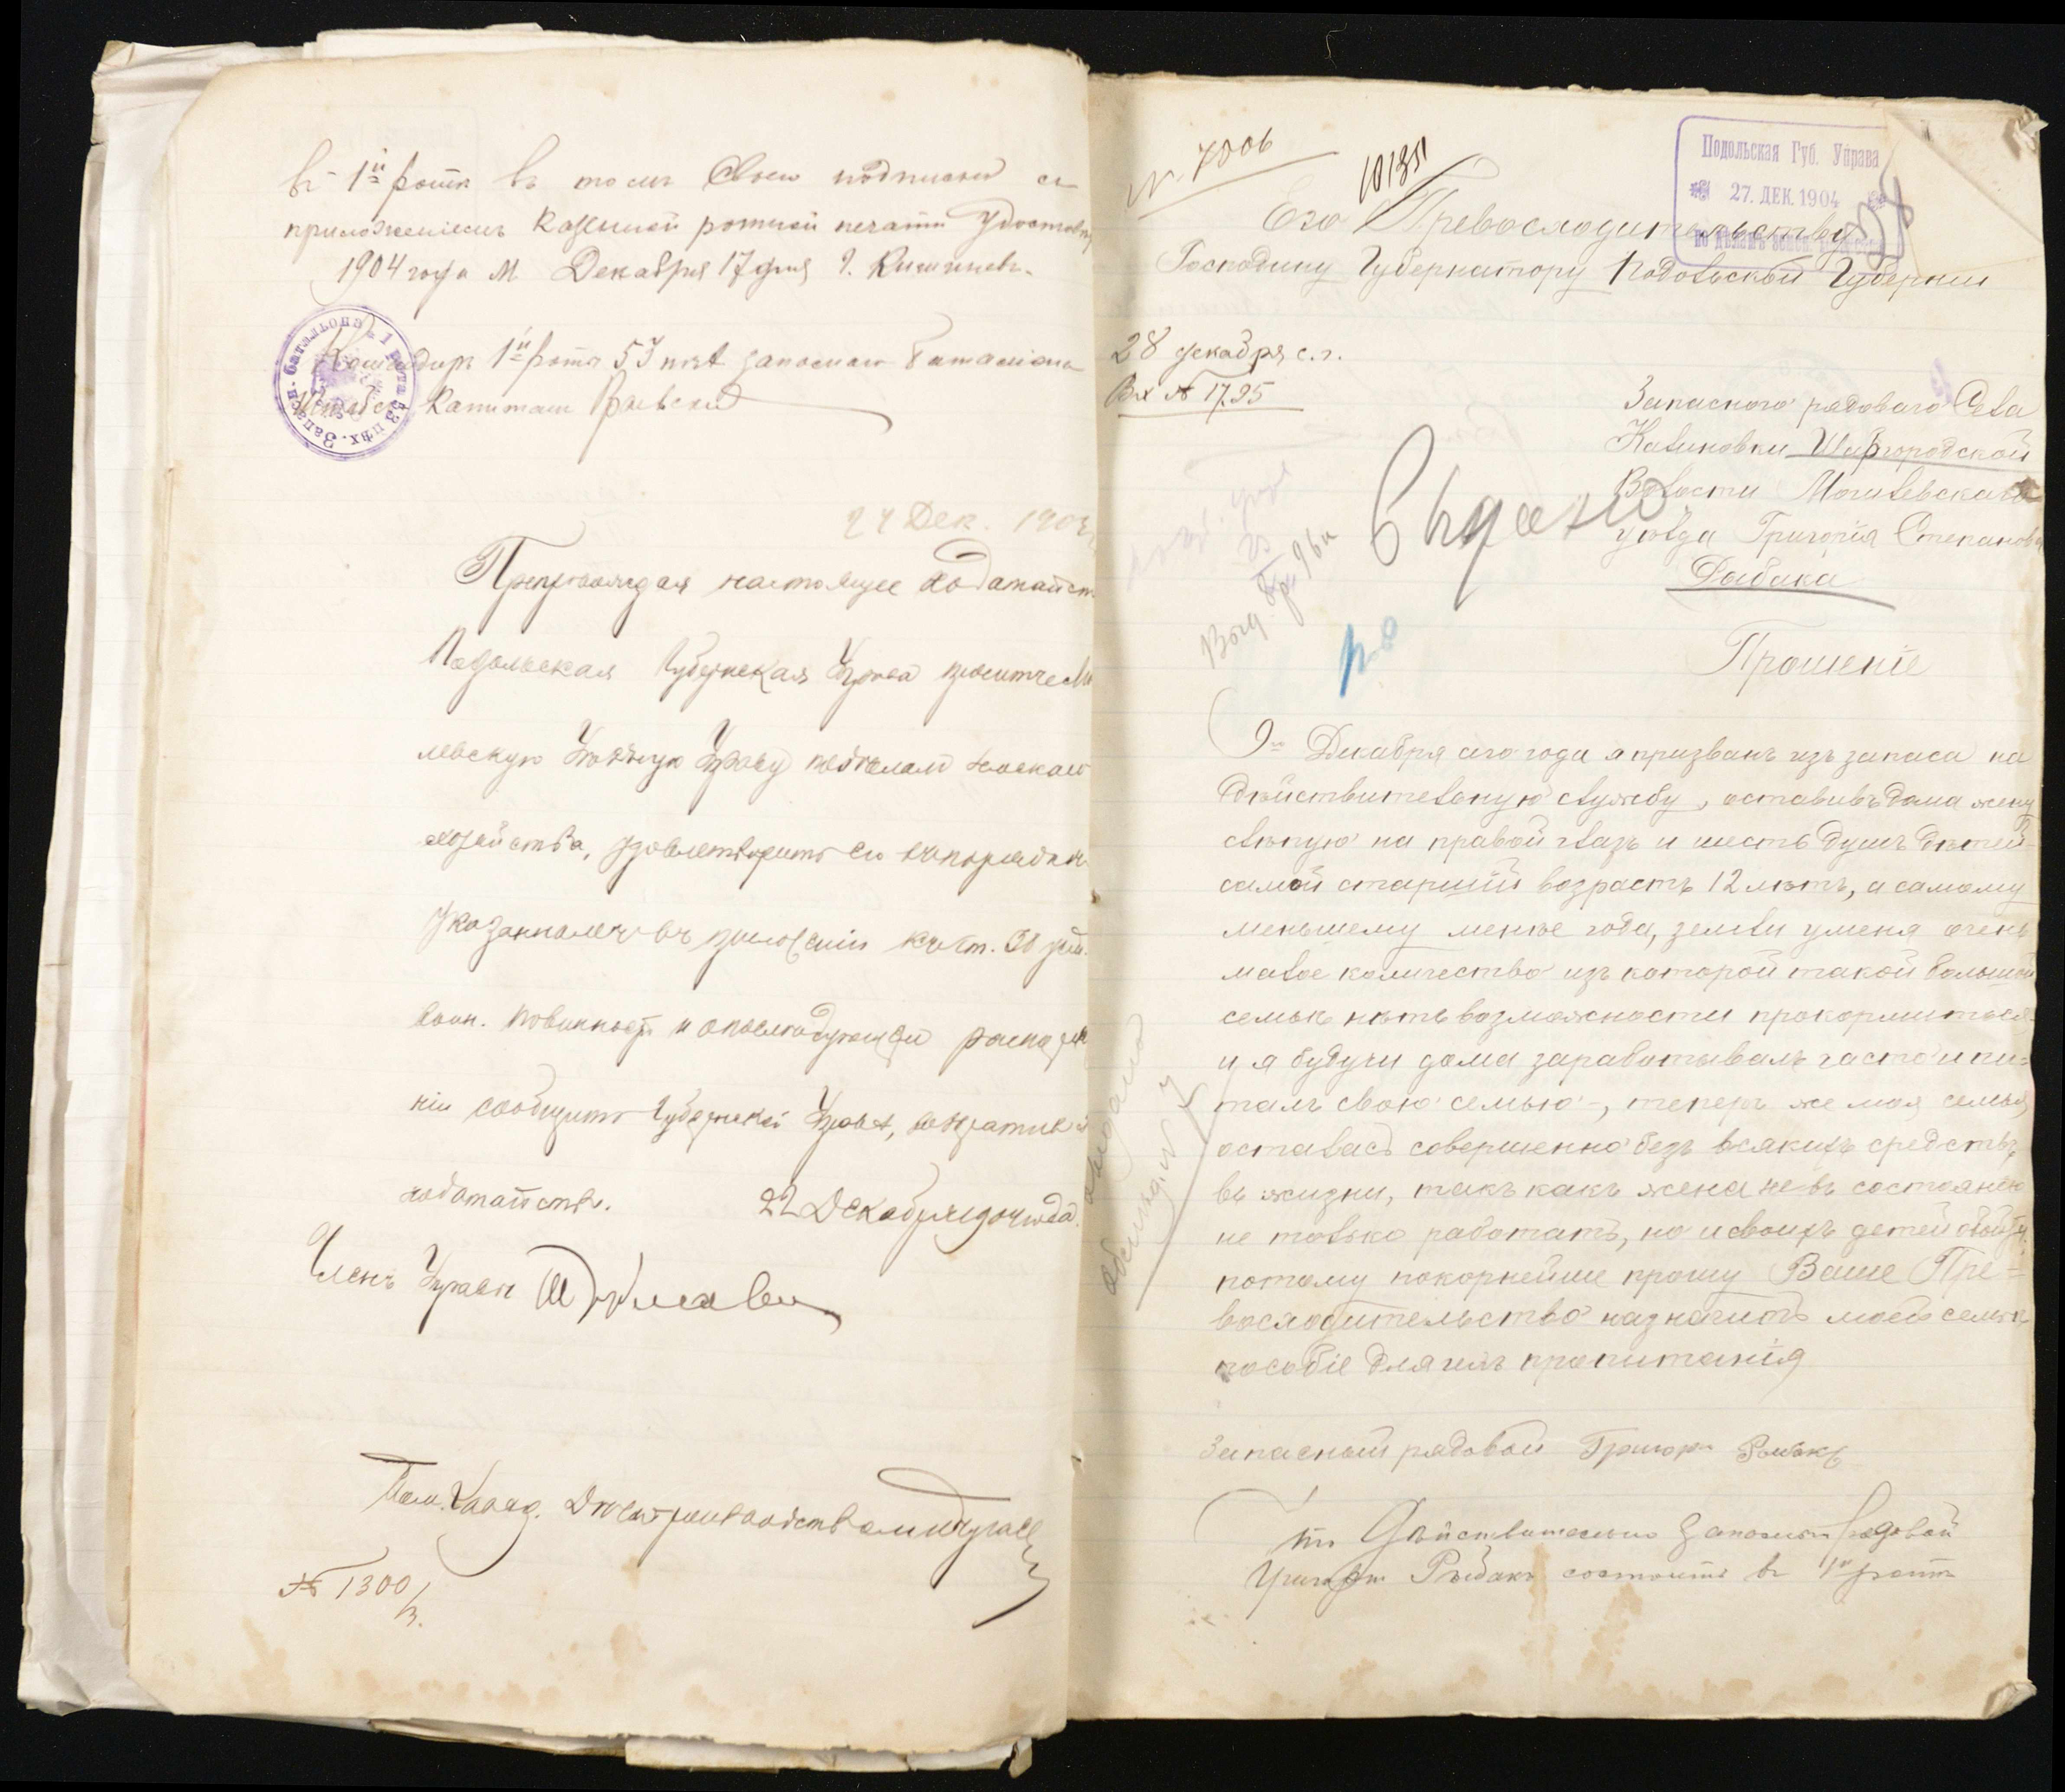 въ 1й ротѣ въ томъ своею подписью съ
приложеніемъ казенной ротной печати удостовѣ
1904 года М Декабря 17 дня г. Кишиневъ.
Командиръ 1й роты 53 пѣх запаснаго баталіона
Штабсъ Капитанъ
Запасн. баталіона 1 рота 53 пѣх.
24 Дек. 1904
Препровождая настоящее ходатайст
Подольская Губернская Управа проситъ
левскую Уѣздную Управу по дѣламъ земскаго
хозяйства, удовлетворить его въ порядкѣ
указанномъ въ приложеніи къ ст. 38 уст.
воин. повинност. и о послѣдующем распоряже
ніи сообщить Губернской Управѣ, возвративъ
ходатайство. 22 Декабря 1904 года.
Членъ Управы
Пом. Завѣд. Дѣлопроизводствомъ
№ 1300/в.
№ 7006
10135
Подольская Губ. Управа
27. ДЕК. 1904
по дѣламъ земск. хозяйства
Его Превосходительству
Господину Губернатору Подольской Губерніи
28 декабря с.г.
Вх № 1795
Запаснаго рядоваго Села
Калиновки Шаргородской
Волости Могилевскаго
уѣзда Григорія Степанова
Рыбака
Прошеніе
9го Декабря сего года я призванъ изъ запаса на
дѣйствительную службу, оставивъ дома жену
слѣпую на правой глазъ и шесть душъ дѣтей
самой старшій возрастъ 12 лѣтъ, а самому
меньшему менѣе года, земли у меня очень
малое количество изъ которой такой большой
семьѣ нѣтъ возможности прокормиться
и я будучи дома зарабатывалъ часто и пи=
талъ свою семью, теперь же моя семья
осталась совершенно безъ всякихъ средствъ
въ жизни, такъ какъ жена не въ состояніи
не только работать, но и своихъ детей
потому покорнейше прошу Ваше Пре=
восходительство назначить моей семьѣ
пособіе для ихъ пропитанія
Запасный рядовой Григори Рыбакъ
Что Дѣйствительно запасный рядовой
Григори Рыбакъ состоитъ въ 1й ротѣ